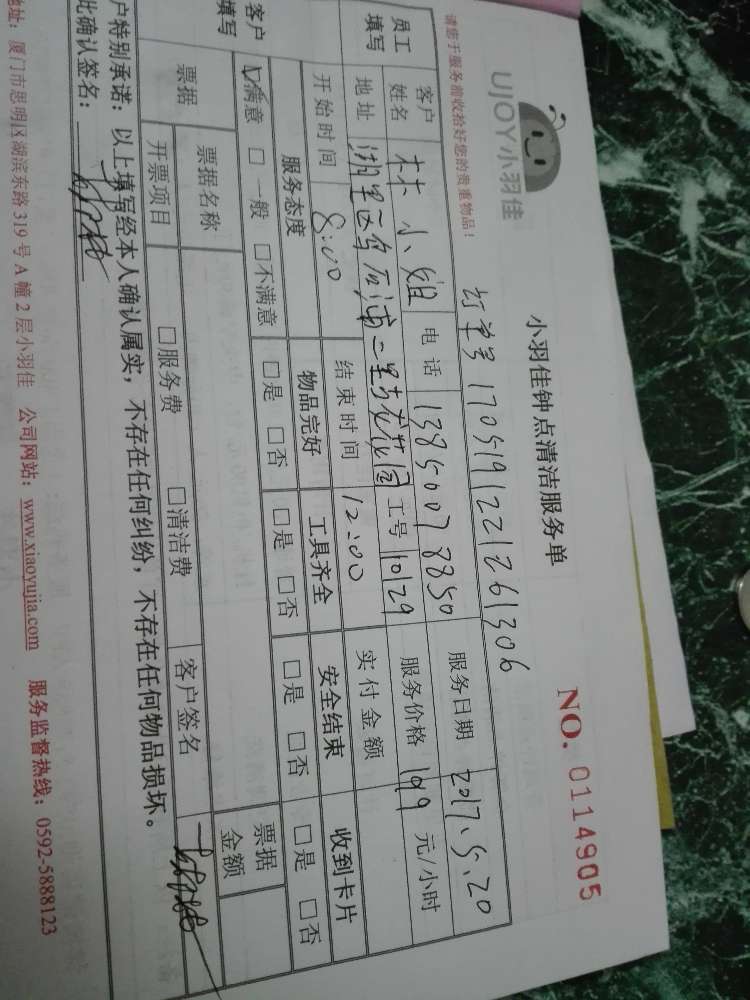 UJOY小羽佳
小羽佳钟点清洁服务单
NO. 0114905
请您于服务前收拾好您的贵重物品！
订单号 1705191221261306
员工填写
客户姓名 林小姐 电话 13850078850 服务日期 2017.5.20
地址 湖里区 石浦二里 花园 工号 10129 服务价格 元/小时
开始时间 8:00 结束时间 12:00 实付金额
客户填写
服务态度 物品完好 工具齐全 安全结束 收到卡片
☑满意 □一般 □不满意 □是 □否 □是 □否 □是 □否 □是 □否
票据 票据名称 票据金额
开票项目 □服务费 □清洁费 客户签名
户特别承诺：以上填写经本人确认属实，不存在任何纠纷，不存在任何物品损坏。
此确认签名：
地址：厦门市思明区湖滨东路319号A幢2层小羽佳 公司网站：www.xiaoyujia.com 服务监督热线：0592-5888123